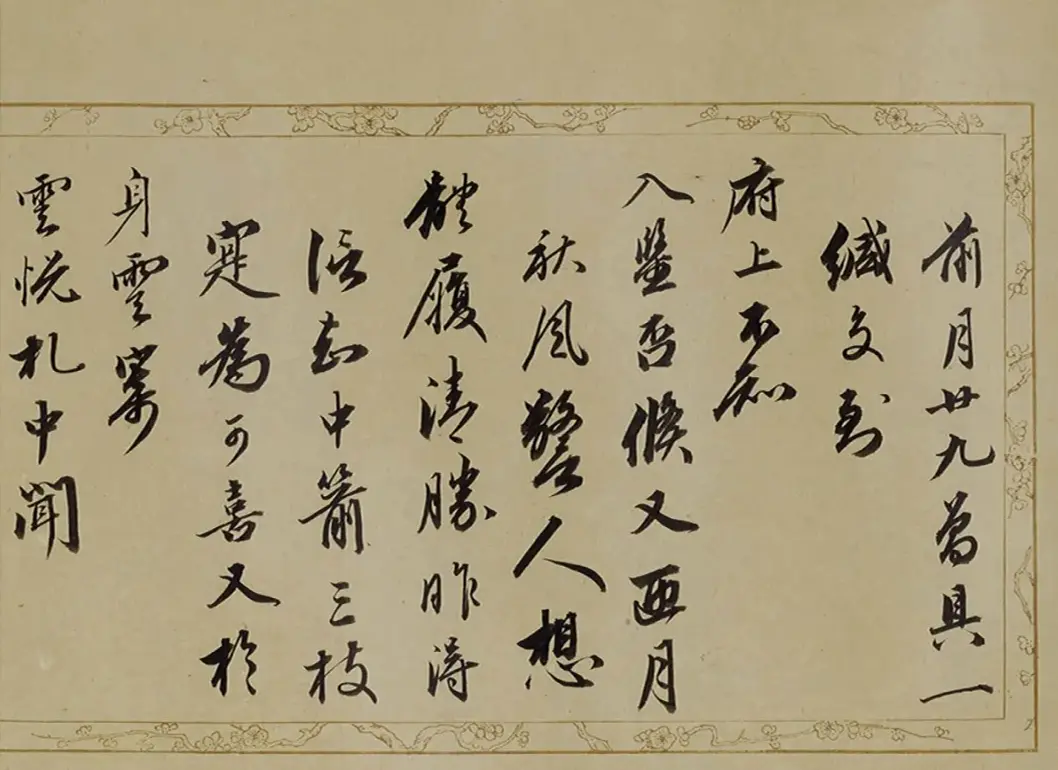 前月廿九曾具一
緘交到
府上不知
入鑒否倏又兩月
秋風警人想
體履清勝昨得
信知中箭三枝
寔為可喜又於
身雲寮
雲悦札中聞